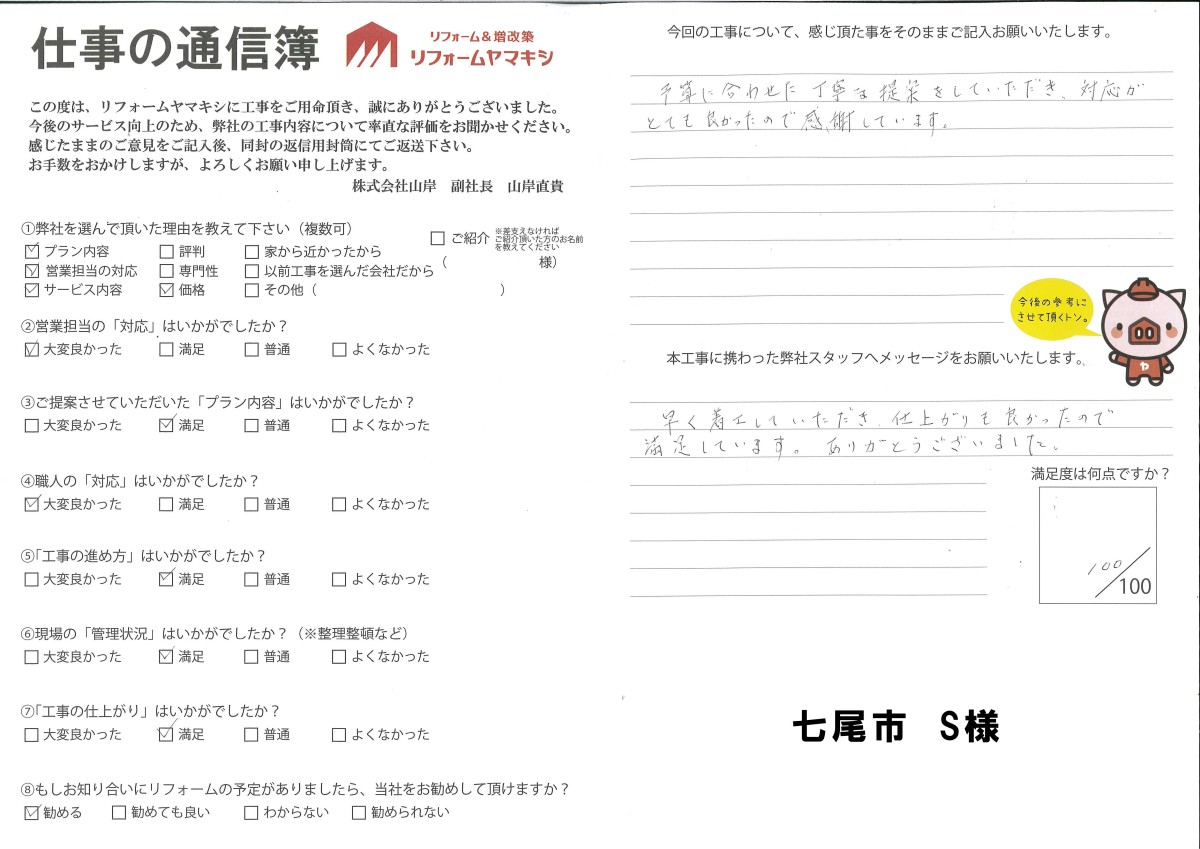 仕事の通信簿
リフォーム&増改築
リフォームヤマキシ
この度は、リフォームヤマキシに工事をご用命頂き、誠にありがとうございました。
今後のサービス向上のため、弊社の工事内容について率直な評価をお聞かせください。
感じたままのご意見をご記入後、同封の返信用封筒にてご返送下さい。
お手数をおかけしますが、よろしくお願い申し上げます。
株式会社山岸 副社長 山岸直貴
①弊社を選んで頂いた理由を教えて下さい（複数可）
☑プラン内容 □評判 □家から近かったから
☑営業担当の対応 □専門性 □以前工事を選んだ会社だから
☑サービス内容 ☑価格 □その他（ ）
□ご紹介 ※差支えなければ
ご紹介頂いた方のお名前
を教えてください
（ 様）
②営業担当の「対応」はいかがでしたか？
☑大変良かった □満足 □普通 □よくなかった
③ご提案させていただいた「プラン内容」はいかがでしたか？
□大変良かった ☑満足 □普通 □よくなかった
④職人の「対応」はいかがでしたか？
☑大変良かった □満足 □普通 □よくなかった
⑤「工事の進め方」はいかがでしたか？
□大変良かった ☑満足 □普通 □よくなかった
⑥現場の「管理状況」はいかがでしたか？（※整理整頓など）
□大変良かった ☑満足 □普通 □よくなかった
⑦「工事の仕上がり」はいかがでしたか？
□大変良かった ☑満足 □普通 □よくなかった
⑧もしお知り合いにリフォームの予定がありましたら、当社をお勧めして頂けますか？
☑勧める □勧めても良い □わからない □勧められない
今回の工事について、感じ頂た事をそのままご記入お願いいたします。
予算に合わせた丁寧な提案をしていただき、対応が
とても良かったので感謝しています。
今後の参考に
させて頂くトン。
ヤ
本工事に携わった弊社スタッフへメッセージをお願いいたします。
早く着工していただき、仕上がりも良かったので
満足しています。ありがとうございました。
満足度は何点ですか？
100/100
七尾市 S様